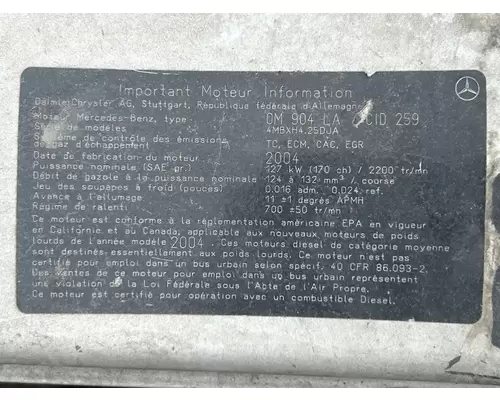 Important Moteur Information
DaimlerChrysler AG, Stuttgart, République fédérale d'Allemagne
Moteur Mercedes-Benz, type OM 904 LA CID 259
Série de modèles 4MBXH4.25DJA
Système de contrôle des émissions
de gaz d'échappement TC, ECM, CAC, EGR
Date de fabrication du moteur 2004
Puissance nominale (SAE gr.) 127 kW (170 ch) / 2200 tr/mn
Débit de gazole à la puissance nominale 124 à 132 mm³ / course
Jeu des soupapes à froid (pouces) 0,016 adm. 0,024 ref.
Avance à l'allumage 11 ±1 degrés APMH
Régime de ralenti 700 ±50 tr/mn
Ce moteur est conforme à la réglementation américaine EPA en vigueur
en Californie et au Canada, applicable aux nouveaux moteurs de poids
lourds de l'année modèle 2004 . Ces moteurs diesel de catégorie moyenne
sont destinés essentiellement aux poids lourds. Ce moteur n'est pas
certifié pour emploi dans un bus urbain selon spécif. 40 CFR 86.093-2.
Les ventes de ce moteur pour emploi dans un bus urbain représentent
une violation de la Loi Fédérale sous l'Acte de l'Air Propre.
Ce moteur est certifié pour opération avec un combustible Diesel.